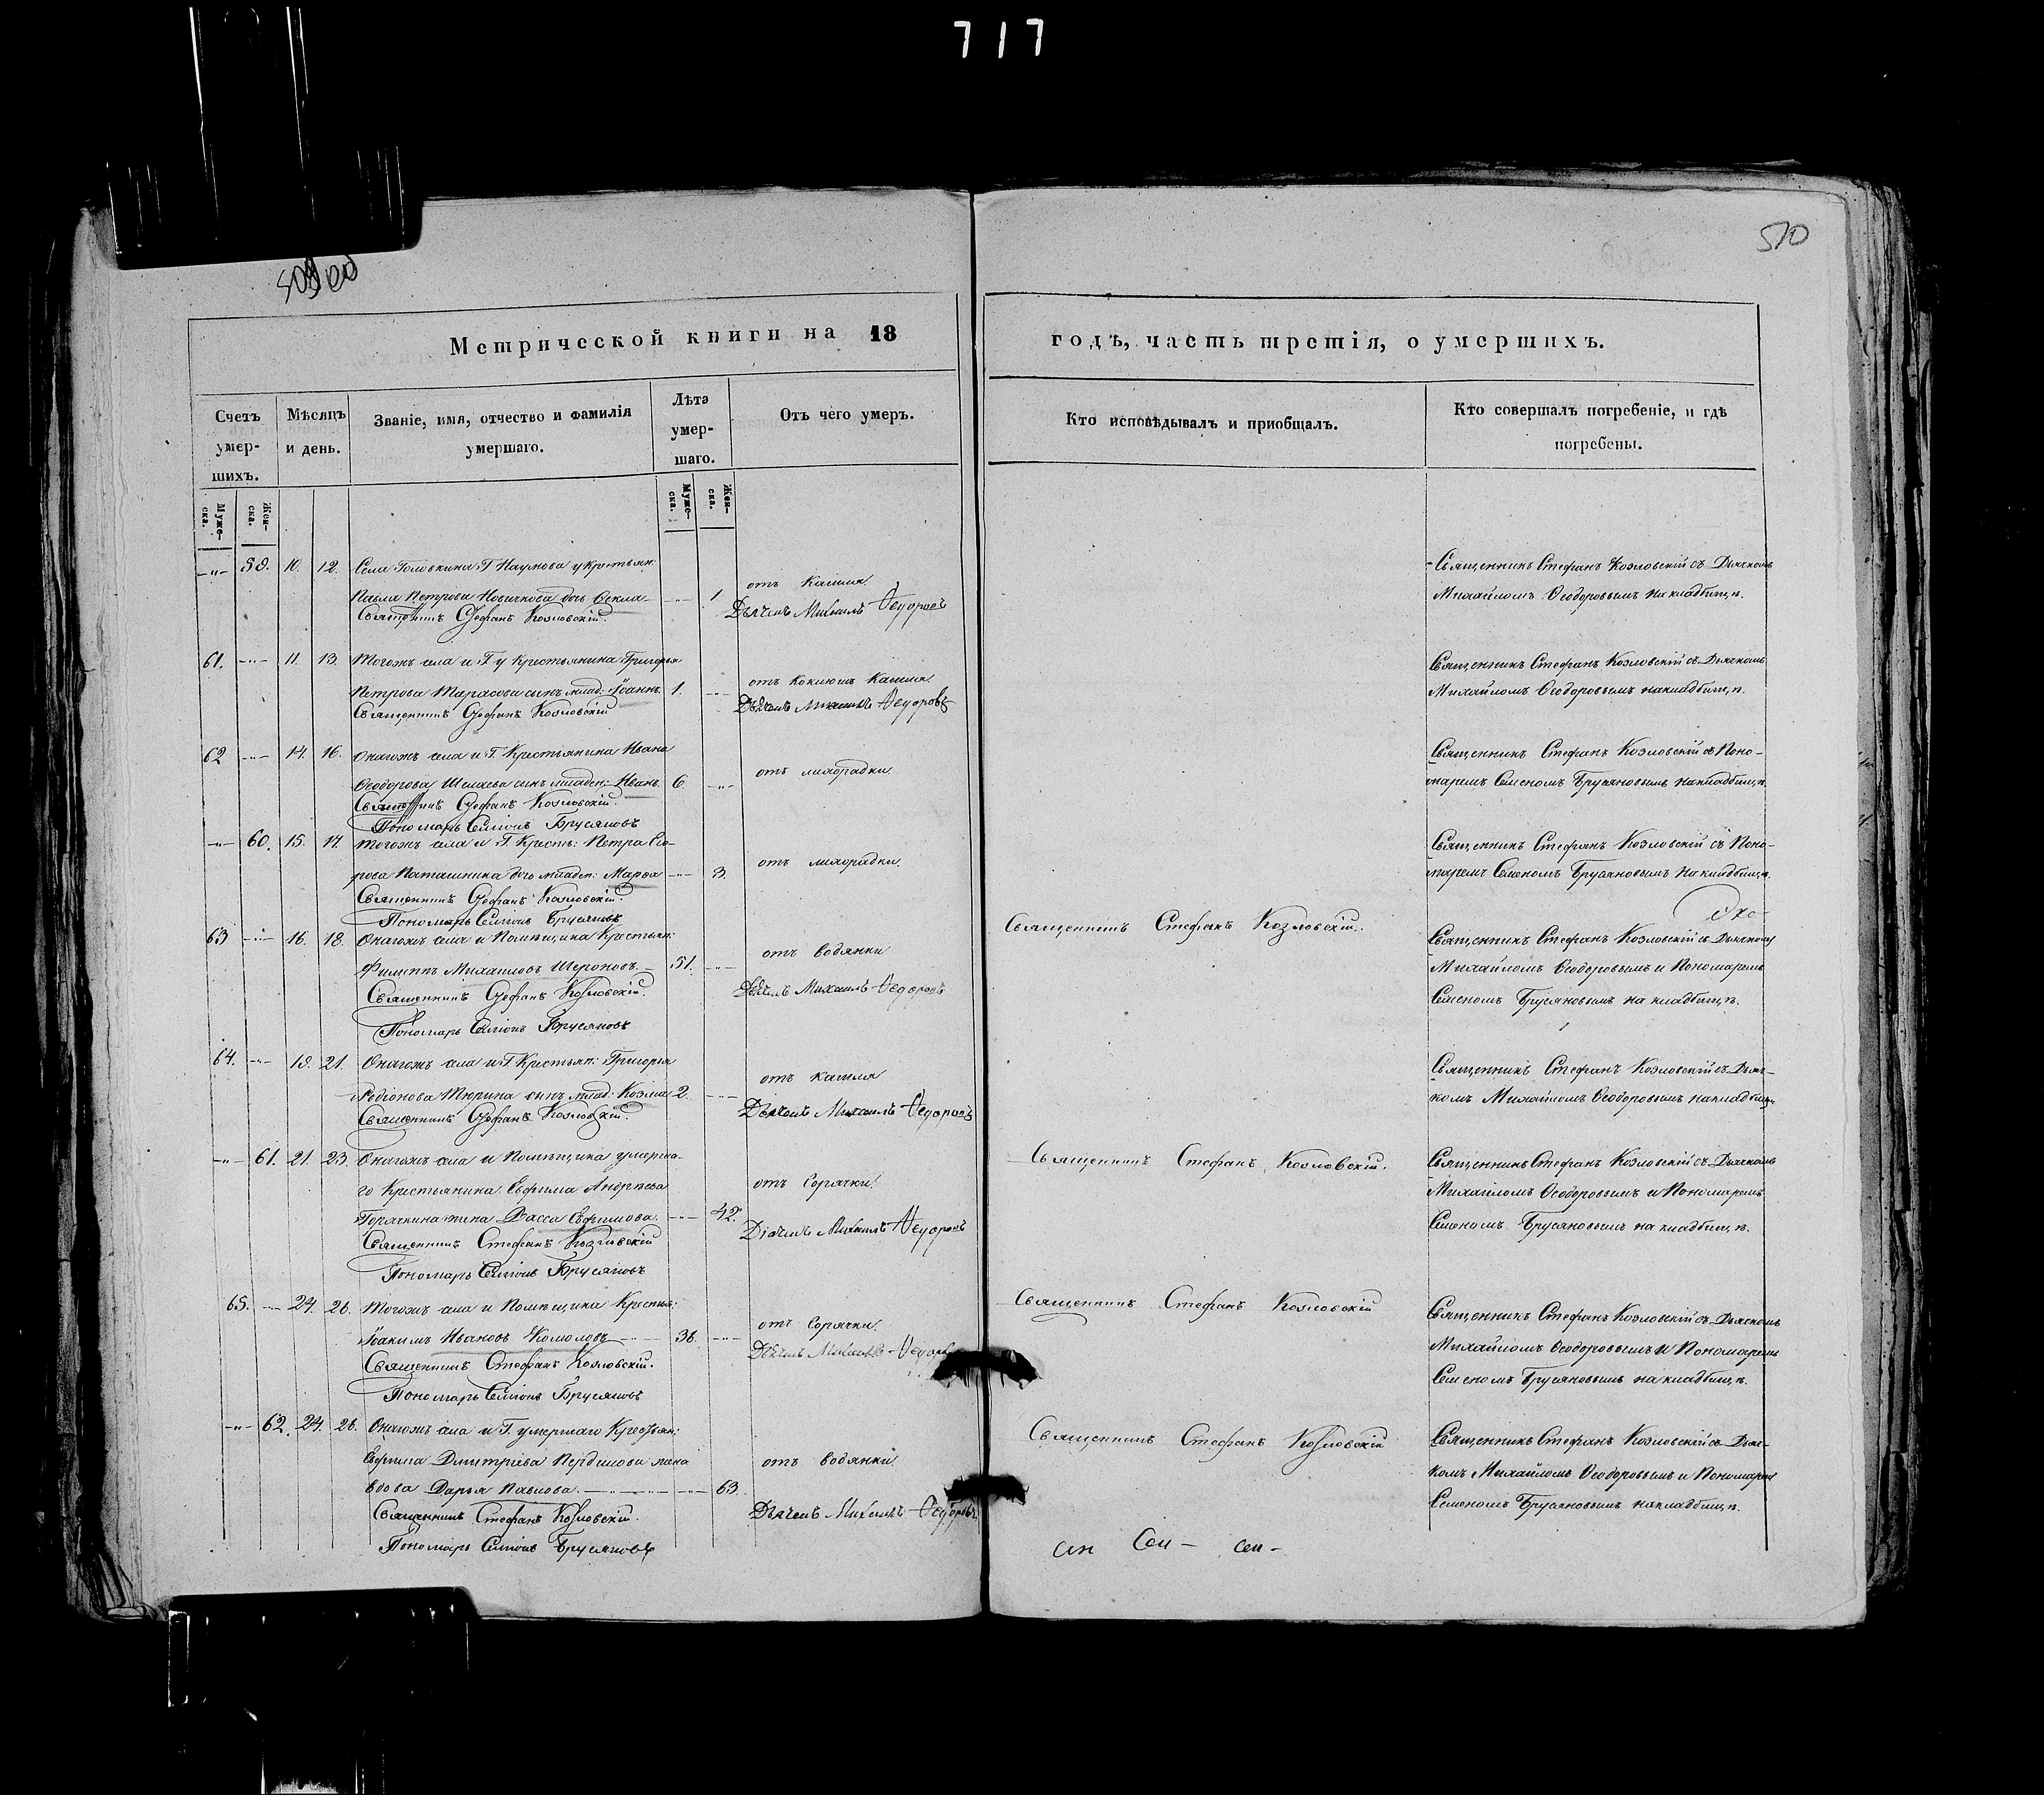 717
510
Метрической книги на 18
годъ, часть третія, о умершихъ.
Счетъ умер-шихъ.
Мѣсяцъ и день.
Званіе, имя, отчество и фамилія умершаго.
Лѣта умер-шаго.
Отъ чего умеръ.
Кто исповѣдывалъ и приобщалъ.
Кто совершалъ погребеніе, и гдѣ погребены.
Муже-ска.
Жен-ска.
Муже-ска.
Жен-ска.
59. 10. 12. Села Головкина Г. Наумова у крестьян:
Павла Петрова Новичкова дочь Ѳекла 1
отъ кашля
Священникъ Стефанъ Козловскій.
Дьячекъ Михаилъ Ѳедоровъ
Священникъ Стефанъ Козловскій съ Дьячкомъ
Михайломъ Ѳеодоровымъ на кладбищѣ.
61. 11. 13. Тогожъ села и Г. у крестьянина Григорья
Петрова Тарасова сынъ млад: Іоаннъ. 1.
отъ кашля
Священникъ Стефанъ Козловскій
Дьячекъ Михаилъ Ѳедоровъ
Священникъ Стефанъ Козловскій съ Дьячкомъ
Михайломъ Ѳеодоровымъ на кладбищѣ.
62 14. 16. Онагожъ села и Г. Крестьянина Ивана
Ѳеодорова сынъ младен: Иванъ. 6.
отъ лихорадки
Священникъ Стефанъ Козловскій.
Пономарь Семіонъ Брусяновъ
Священникъ Стефанъ Козловскій съ Поно-
маремъ Семеномъ Брусяновымъ на кладбищѣ.
60. 15. 17. Тогожъ села и Г. Кресть: Петра
дочь младен: Марѳа 3.
отъ лихорадки
Священникъ Стефанъ Козловскій.
Пономарь Семіонъ Брусяновъ
Священникъ Стефанъ Козловскій съ Поно-
маремъ Семеномъ Брусяновымъ на кладбищѣ.
63 16. 18. Онагожъ села и Помѣщика Крестьян:
Филиппъ Михаиловъ 51.
отъ водянки
Священникъ Стефанъ Козловскій.
Дьячекъ Михаилъ Ѳедоровъ
Пономарь Семіонъ Брусяновъ
Священникъ Стефанъ Козловскій.
Священникъ Стефанъ Козловскій съ Дьячкомъ
Михайломъ Ѳеодоровымъ и Пономаремъ
Семеномъ Брусяновымъ на кладбищѣ.
64. 19. 21. Онагожъ села и Г. Крестьян: Григорья
Родіонова Тюрина сынъ млад: Козма 2.
отъ кашля
Священникъ Стефанъ Козловскій.
Дьячекъ Михаилъ Ѳедоровъ
Священникъ Стефанъ Козловскій съ Дьяч-
комъ Михайломъ Ѳеодоровымъ на кладбищѣ
61. 21. 23. Онагожъ села и Помѣщика умерша-
го Крестьянина Евфима Андреева
Горячкина жена Васса Ефимова. 42.
отъ горячки
Священникъ Стефанъ Козловскій
Дьячекъ Михаилъ Ѳедоровъ
Пономарь Семіонъ Брусяновъ
Священникъ Стефанъ Козловскій.
Священникъ Стефанъ Козловскій съ Дьячкомъ
Михайломъ Ѳеодоровымъ и Пономаремъ
Семеномъ Брусяновымъ на кладбищѣ.
65. 24. 26. Тогожъ села и Помѣщика Крестья:
Іоакимъ Ивановъ Комоловъ 36.
отъ горячки
Священникъ Стефанъ Козловскій.
Дьячекъ Михаилъ Ѳедоровъ
Пономарь Семіонъ Брусяновъ
Священникъ Стефанъ Козловскій
Священникъ Стефанъ Козловскій съ Дьячкомъ
Михайломъ Ѳеодоровымъ и Пономаремъ
Семеномъ Брусяновымъ на кладбищѣ.
62. 24. 26. Онагожъ села и Г. умершаго Крестьян:
Ефима Дмитріева жена
вдова Дарья Павлова. 63.
отъ водянки
Священникъ Стефанъ Козловскій.
Дьячекъ Михаилъ Ѳедоровъ
Пономарь Семіонъ Брусяновъ
Священникъ Стефанъ Козловскій
Священникъ Стефанъ Козловскій съ Дьяч-
комъ Михайломъ Ѳеодоровымъ и Пономаремъ
Семеномъ Брусяновымъ на кладбищѣ.